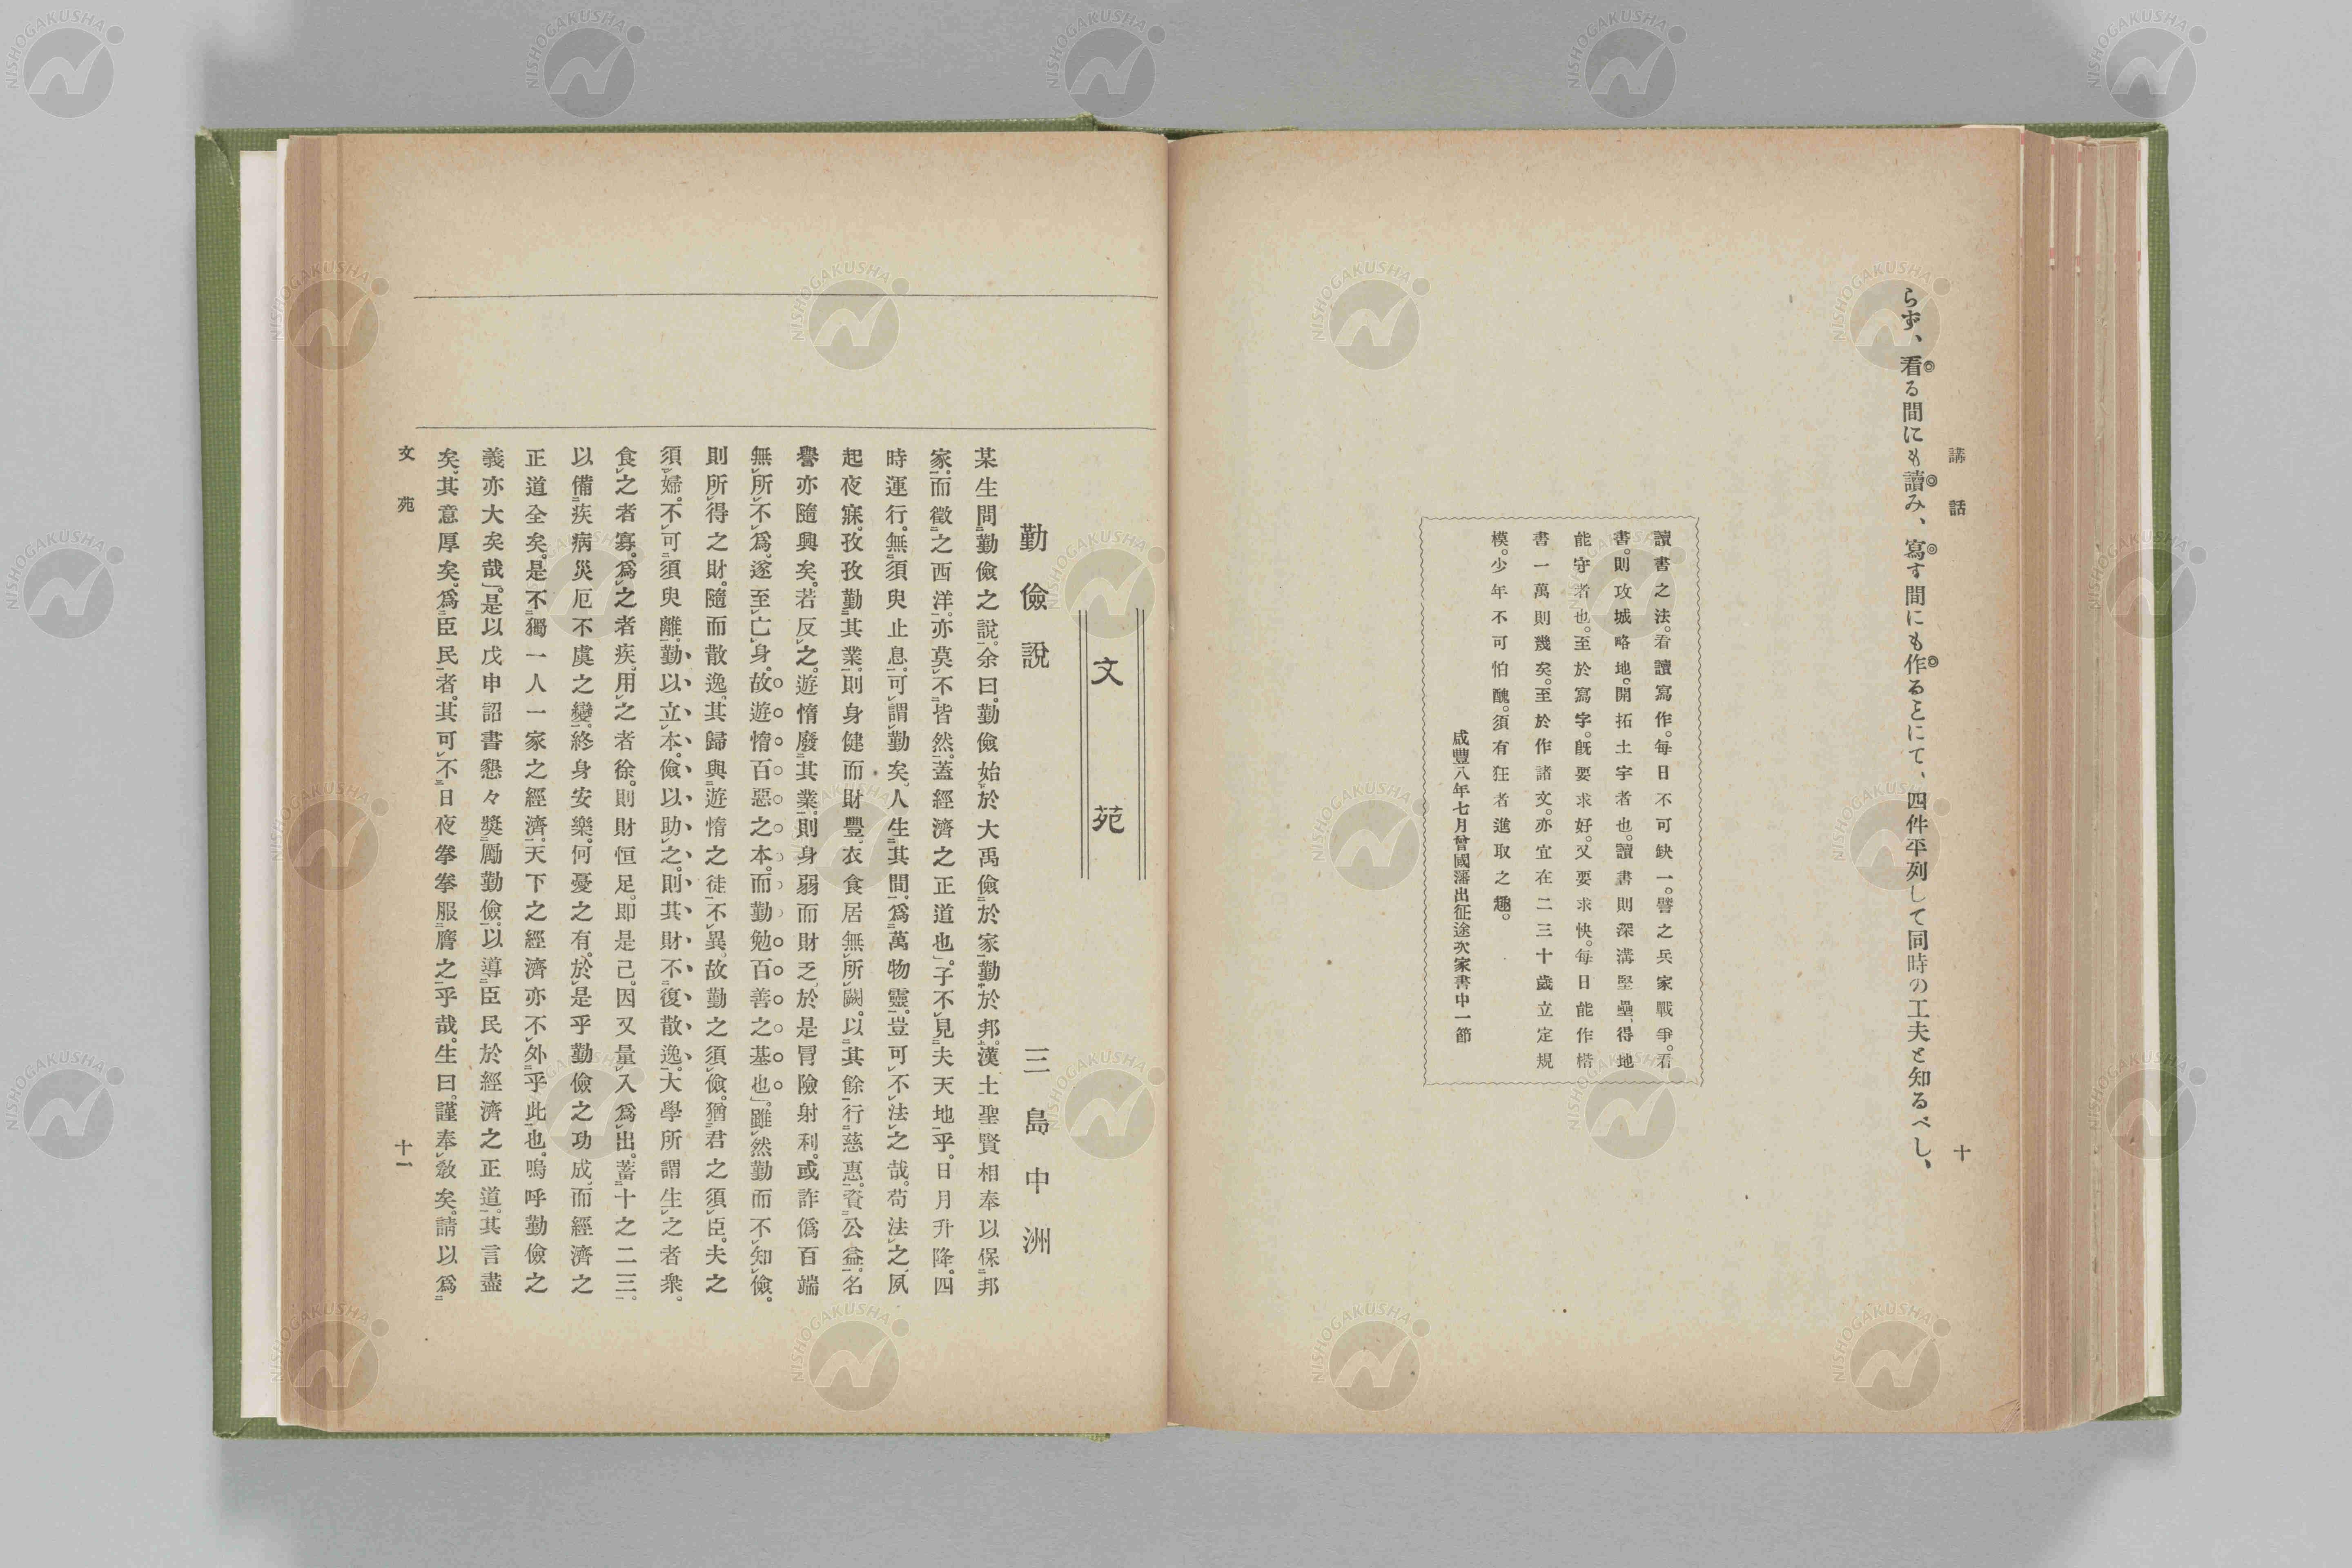 講話
十
らず、看る間にも讀み、寫す間にも作ることにて、四件平列して同時の工夫と知るべし、
讀書之法。看讀寫作。每日不可缺一。譬之兵家戰爭。看
書。則攻城略地。開拓土宇者也。讀書則深溝堅壘、得地
能守者也。至於寫字。旣要求好。又要求快。每日能作楷
書一萬則幾矣。至於作諸文。亦宜在二三十歲立定規
模。少年不可怕醜。須有狂者進取之趣。
咸豐八年七月曾國藩出征途次家書中一節
文苑
勤儉說
三島中洲
某生問勤儉之說。余曰。勤儉始於大禹儉於家勤於邦。漢土聖賢相奉以保邦
家。而徵之西洋。亦莫不皆然。蓋經濟之正道也」。子不見夫天地乎。日月升降。四
時運行。無須臾止息。可謂勤矣。人生其間。爲萬物靈。豈可不法之哉。苟法之、夙
起夜寐。孜孜勤其業。則身健而財豐。衣食居無所闕。以其餘行慈惠。資公益。名
譽亦隨興矣。若反之。遊惰廢其業。則身弱而財乏、於是冒險射利。或詐僞百端
無所不爲。遂至亡身。故遊惰百惡之本。而勤勉百善之基也」。雖然勤而不知儉。
則所得之財。隨而散逸。其歸與遊惰之徒不異。故勤之須儉。猶君之須臣。夫之
須婦。不可須臾離。勤以立本。儉以助之。則其財不復散逸。大學所謂生之者衆。
食之者寡。爲之者疾。用之者徐。則財恒足。卽是己。因又量入爲出。蓄十之二三。
以備疾病災厄不虞之變。終身安樂。何憂之有。於是乎勤儉之功成、而經濟之
正道全矣。是不獨一人一家之經濟。天下之經濟亦不外乎此也。嗚呼勤儉之
義亦大矣哉」。是以戊申詔書懇々獎勵勤儉以導臣民於經濟之正道。其言盡
矣。其意厚矣。爲臣民者。其可不日夜拳拳服膺之乎哉。生曰。謹奉敎矣。請以爲
文苑
十一
NISHOGAKUSHA